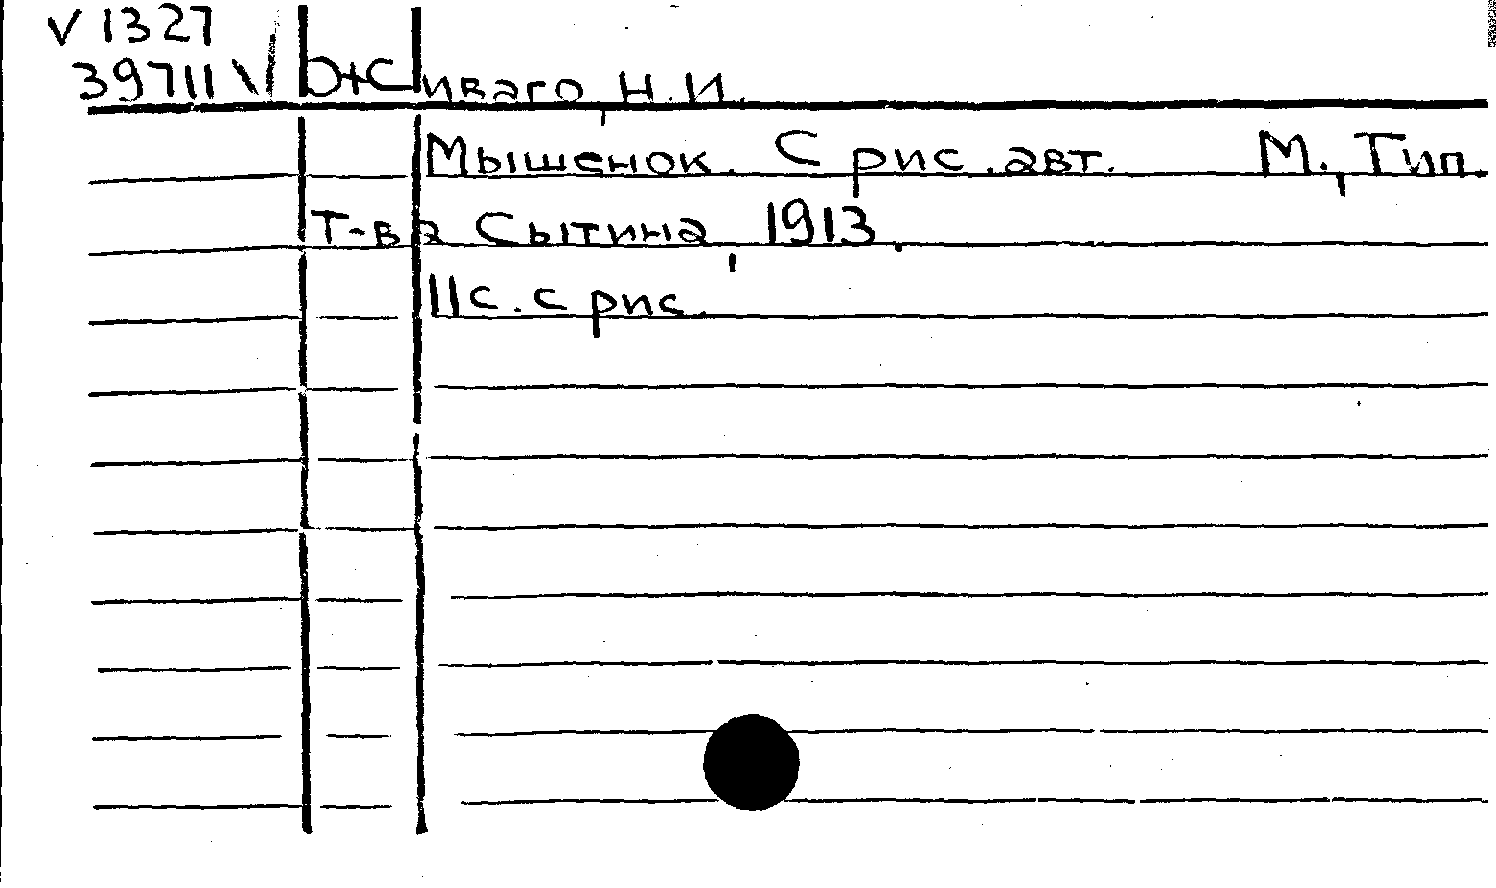 V 1327
39711 V Живаго, Н.И.
Мышенок. С рис. авт. М., Тип.
Т-ва Сытина, 1913.
11с. с рис.